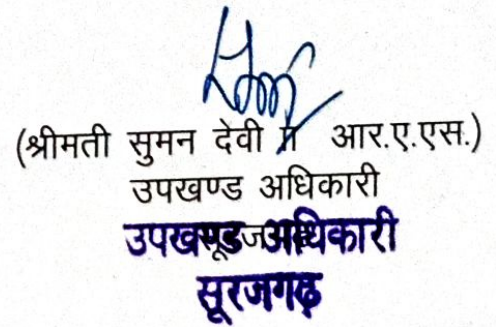 (श्रीमती सुमन देवी आर.ए.एस.)
उपखण्ड अधिकारी
उपखण्ड अधिकारी
सूरजगढ़